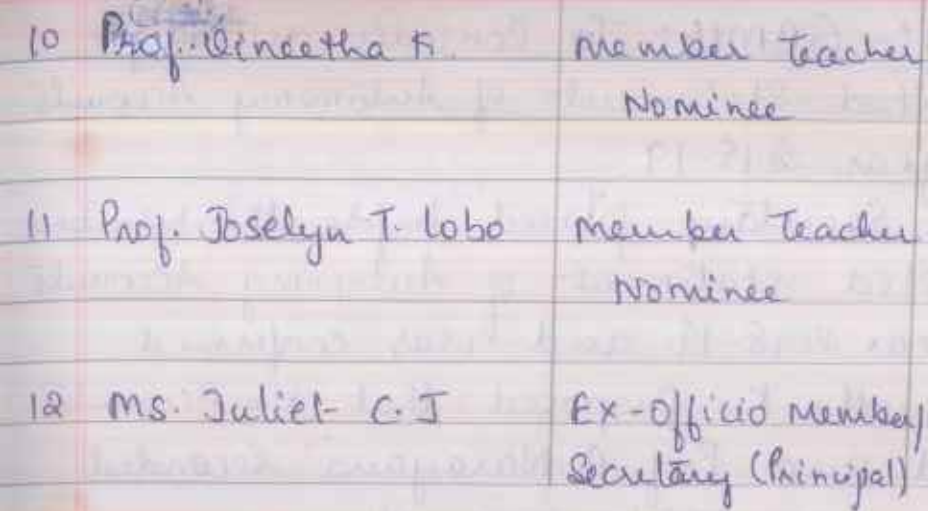 10 Prof. Vineetha K. Member Teacher
Nominee
11 Prof. Joselyn T. Lobo Member Teacher
Nominee
12 Ms. Juliet C.J Ex-Officio Member/
Secretary (Principal)